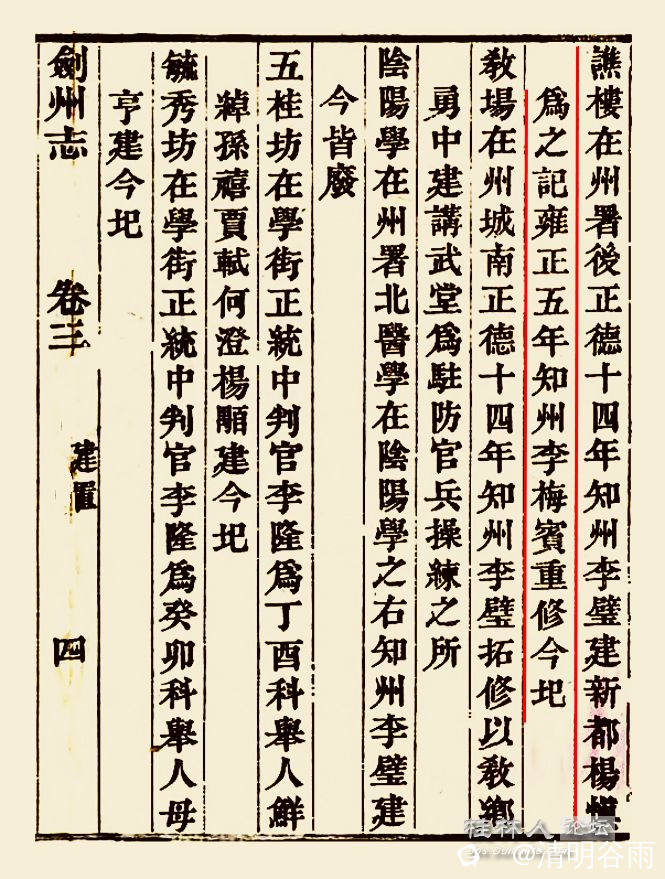 譙樓在州署後正德十四年知州李璧建新都楊慎
為之記雍正五年知州李梅賓重修今圯
教場在州城南正德十四年知州李璧拓修以教鄉
勇中建講武堂為駐防官兵操練之所
陰陽學在州署北醫學在陰陽學之右知州李璧建
今皆廢
五桂坊在學街正統中判官李隆為丁酉科舉人鮮
綽孫禧賈軾何澄楊顒建今圯
毓秀坊在學街正統中判官李隆為癸卯科舉人母
亨建今圯
劍州志 卷三 建置 四
桂林人论坛
@清明谷雨